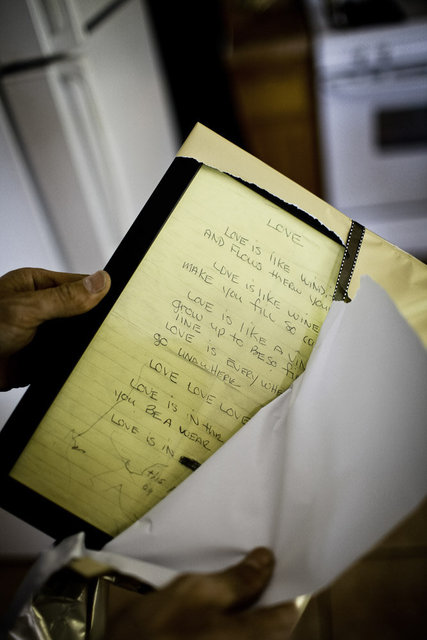 LOVE
LOVE is like wind
AND Flows threw you
LOVE is like wine
make you fill so
LOVE is like a vin
grow up to be so
line
LOVE is EVERY whe
go unawhere
LOVE LOVE LOVE
LOVE is in the
you BE A WEAR
LOVE is in